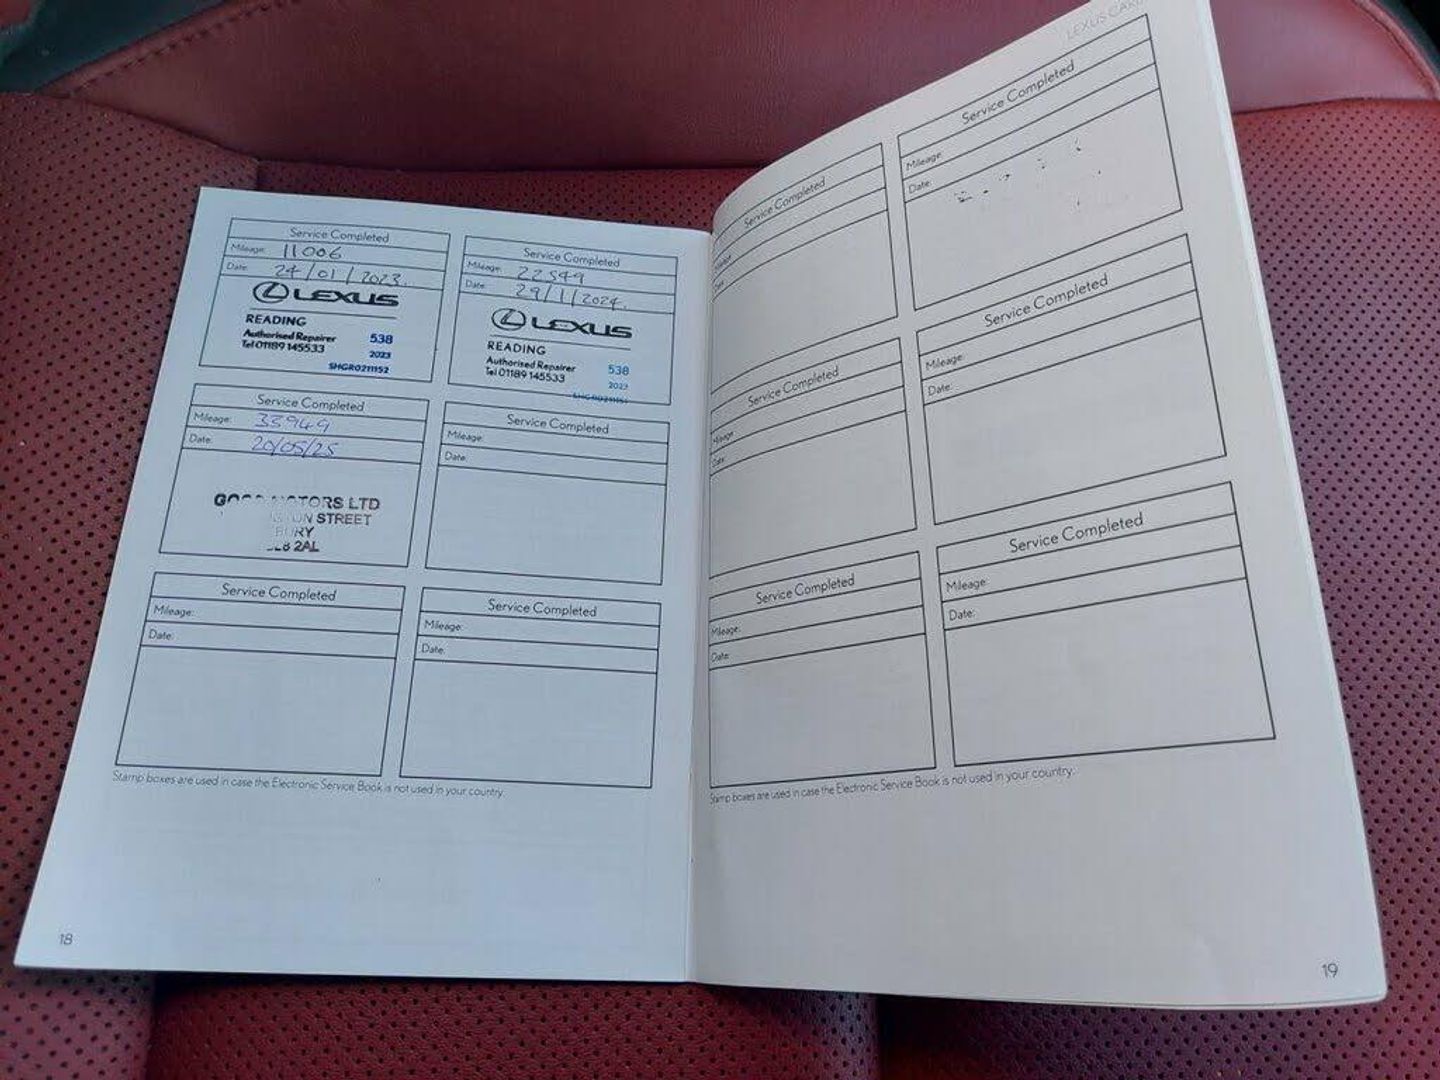 Service Completed
Mileage: 11006
Date: 24/01/2023.
LEXUS
READING
Authorised Repairer 538
Tel 01189 145533 2023
SHGR0211152
Service Completed
Mileage: 22549
Date: 29/1/2024.
LEXUS
READING
Authorised Repairer 538
Tel 01189 145533 2023
Service Completed
Mileage: 33949
Date: 20/05/25
MOTORS LTD
STREET
2AL
Service Completed
Mileage:
Date:
Service Completed
Mileage:
Date:
Service Completed
Mileage:
Date:
Stamp boxes are used in case the Electronic Service Book is not used in your country.
18
LEXUS
Service Completed
Mileage:
Date:
Service Completed
Mileage:
Date:
Service Completed
Mileage:
Date:
Service Completed
Mileage:
Date:
Service Completed
Mileage:
Date:
Service Completed
Mileage:
Date:
Stamp boxes are used in case the Electronic Service Book is not used in your country.
19